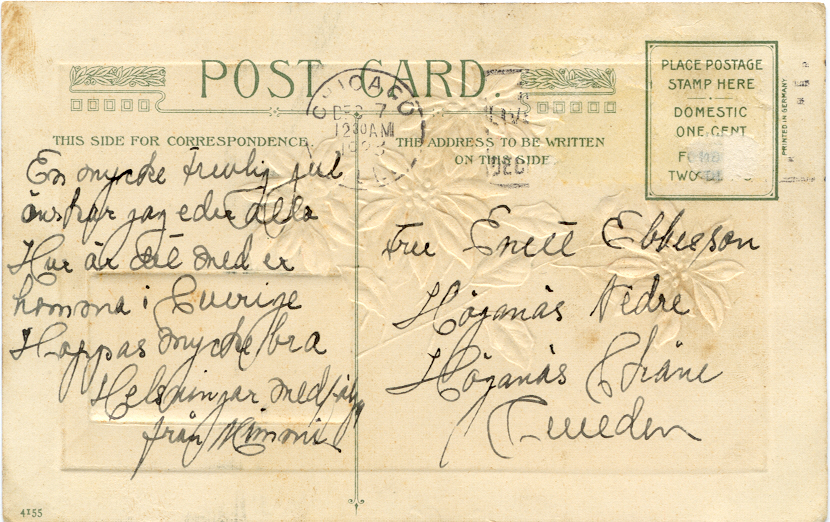 POST CARD.
CHICAGO
DEC 7
12 30 AM
ILL.
DEC
THIS SIDE FOR CORRESPONDENCE
THE ADDRESS TO BE WRITTEN
ON THIS SIDE
PLACE POSTAGE
STAMP HERE
DOMESTIC
ONE CENT
TWO
PRINTED IN GERMANY
En mycke trevlig jul
önskar jag eder alla
Hur är det med er
homma i Sverige
Hoppas mycke bra
Helsningar medföljer
från Mimmi
Fru Enett Ebbesson
Höganäs Nedre
Höganäs Skåne
Sweden
4155